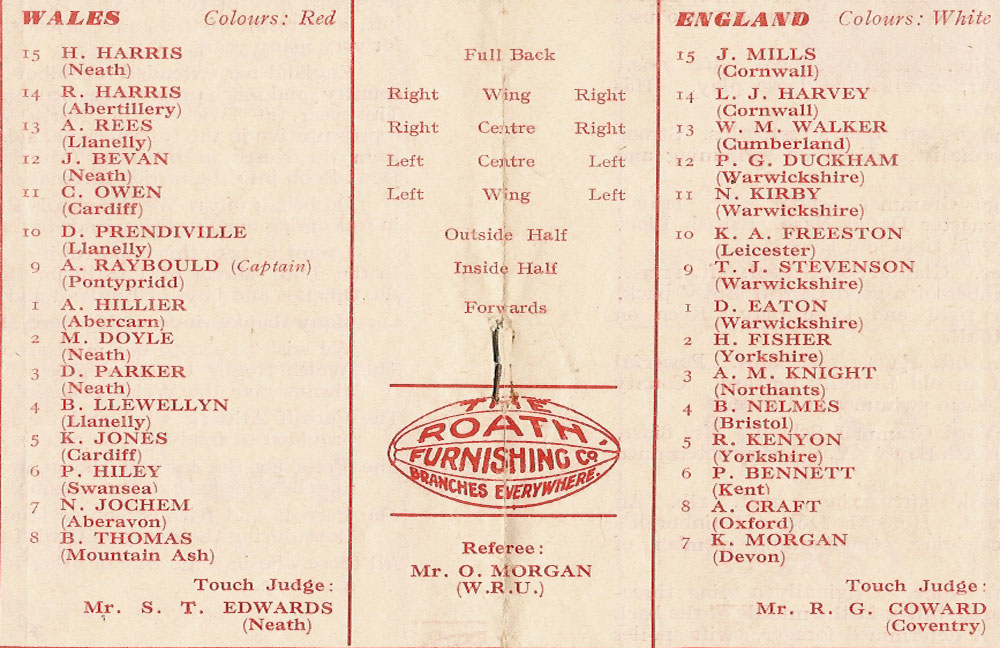 WALES Colours: Red
15 H. HARRIS
(Neath)
14 R. HARRIS
(Abertillery)
13 A. REES
(Llanelly)
12 J. BEVAN
(Neath)
11 C. OWEN
(Cardiff)
10 D. PRENDIVILLE
(Llanelly)
9 A. RAYBOULD (Captain)
(Pontypridd)
1 A. HILLIER
(Abercarn)
2 M. DOYLE
(Neath)
3 D. PARKER
(Neath)
4 B. LLEWELLYN
(Llanelly)
5 K. JONES
(Cardiff)
6 P. HILEY
(Swansea)
7 N. JOCHEM
(Aberavon)
8 B. THOMAS
(Mountain Ash)
Touch Judge:
Mr. S. T. EDWARDS
(Neath)
Full Back
Right Wing Right
Right Centre Right
Left Centre Left
Left Wing Left
Outside Half
Inside Half
Forwards
THE
ROATH
FURNISHING Co.
BRANCHES EVERYWHERE.
Referee:
Mr. O. MORGAN
(W.R.U.)
ENGLAND Colours: White
15 J. MILLS
(Cornwall)
14 L. J. HARVEY
(Cornwall)
13 W. M. WALKER
(Cumberland)
12 P. G. DUCKHAM
(Warwickshire)
11 N. KIRBY
(Warwickshire)
10 K. A. FREESTON
(Leicester)
9 T. J. STEVENSON
(Warwickshire)
1 D. EATON
(Warwickshire)
2 H. FISHER
(Yorkshire)
3 A. M. KNIGHT
(Northants)
4 B. NELMES
(Bristol)
5 R. KENYON
(Yorkshire)
6 P. BENNETT
(Kent)
8 A. CRAFT
(Oxford)
7 K. MORGAN
(Devon)
Touch Judge:
Mr. R. G. COWARD
(Coventry)